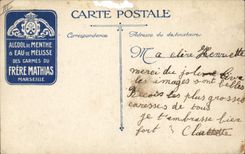 CARTE POSTALE
Correspondance
Adresse du destinataire
ALCOOL DE MENTHE
& EAU DE MÉLISSE
DES CARMES DU
FRÈRE MATHIAS
MARSEILLE
Ma chère Henriette
merci du joli livre
les images sont belles
Reçois les plus grosses
caresses de tous
je t'embrasse bien
fort